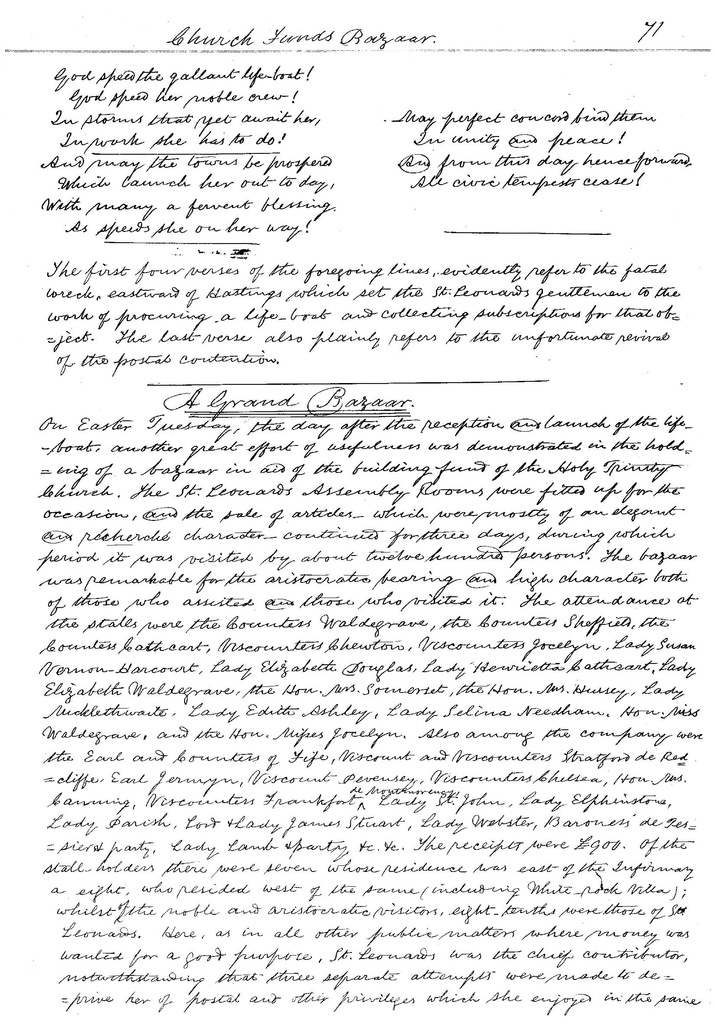 Church Funds Bazaar.
71
God speed the gallant life-boat!
God speed her noble crew!
In storms that yet await her,
In work she has to do!
And may the towns be prosper'd
Which launch her out to day,
With many a fervent blessing
As speeds she on her way!
May perfect concord bind them
In unity and peace!
And from this day henceforward,
All civic tempests cease!
The first four verses of the foregoing lines, evidently refer to the fatal
wreck, eastward of Hastings which set the St. Leonards gentlemen to the
work of procuring a life-boat and collecting subscriptions for that ob=
=ject. The last verse also plainly refers to the unfortunate revival
of the postal contention.
A Grand Bazaar.
On Easter Tuesday, the day after the reception and launch of the life-
-boat, another great effort of usefulness was demonstrated in the hold=
=ing of a bazaar in aid of the building fund of the Holy Trinity
Church. The St. Leonards Assembly Rooms were fitted up for the
occasion, and the sale of articles - which were mostly of an elegant
and recherché character - continued for three days, during which
period it was visited by about twelve hundred persons. The bazaar
was remarkable for the aristocratic bearing and high character both
of those who assisted and those who visited it. The attendance at
the stalls were the Countess Waldegrave, the Countess Sheffield, the
Countess Cathcart, Viscountess Chewton, Viscountess Jocelyn, Lady Susan
Vernon-Harcourt, Lady Elizabeth Douglas, Lady Henrietta Cathcart, Lady
Elizabeth Waldegrave, the Hon. Mrs. Somerset, the Hon. Mrs. Hussey, Lady
Micklethwaite, Lady Edith Ashley, Lady Selina Needham, Hon. Miss
Waldegrave, and the Hon. Misses Jocelyn. Also among the company were
the Earl and Countess of Fife, Viscount and Viscountess Stratford de Red
=cliffe, Earl Jermyn, Viscount Pevensey, Viscountess Chelsea, Hon. Mrs.
Canning, Viscountess Frankfort de Montmorency, Lady St. John, Lady Elphinstone,
Lady Parish, Lord & Lady James Stuart, Lady Webster, Baroness de Tes=
=sier & party, Lady Lamb & party &c. &c. The receipts were £900. Of the
stall-holders there were seven whose residence was east of the Infirmary
a eight, who resided west of the same (including White-rock Villa);
whilst of the noble and aristocratic visitors, eight-tenths were those of St
Leonards. Here, as in all other public matters where money was
wanted for a good purpose, St. Leonards was the chief contributor,
notwithstanding that three separate attempts were made to de=
=prive her of postal and other privileges which she enjoyed in the same